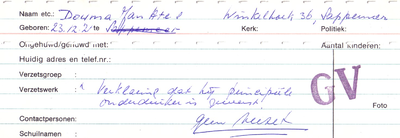 Naam etc.: Douma, Jan Atze Winkelhoek 36, Sappemeer
Geboren: 23.12.2 te Sappemeer Kerk: Politiek:
Ongehuwd/gehuwd met: Aantal kinderen:
Huidig adres en telef.nr.:
Verzetsgroep :
Verzetswerk : Verklaring dat hij principiële
onderduiker is geweest
GV
Foto
Contactpersonen: geen verzet
Schuilnaam :